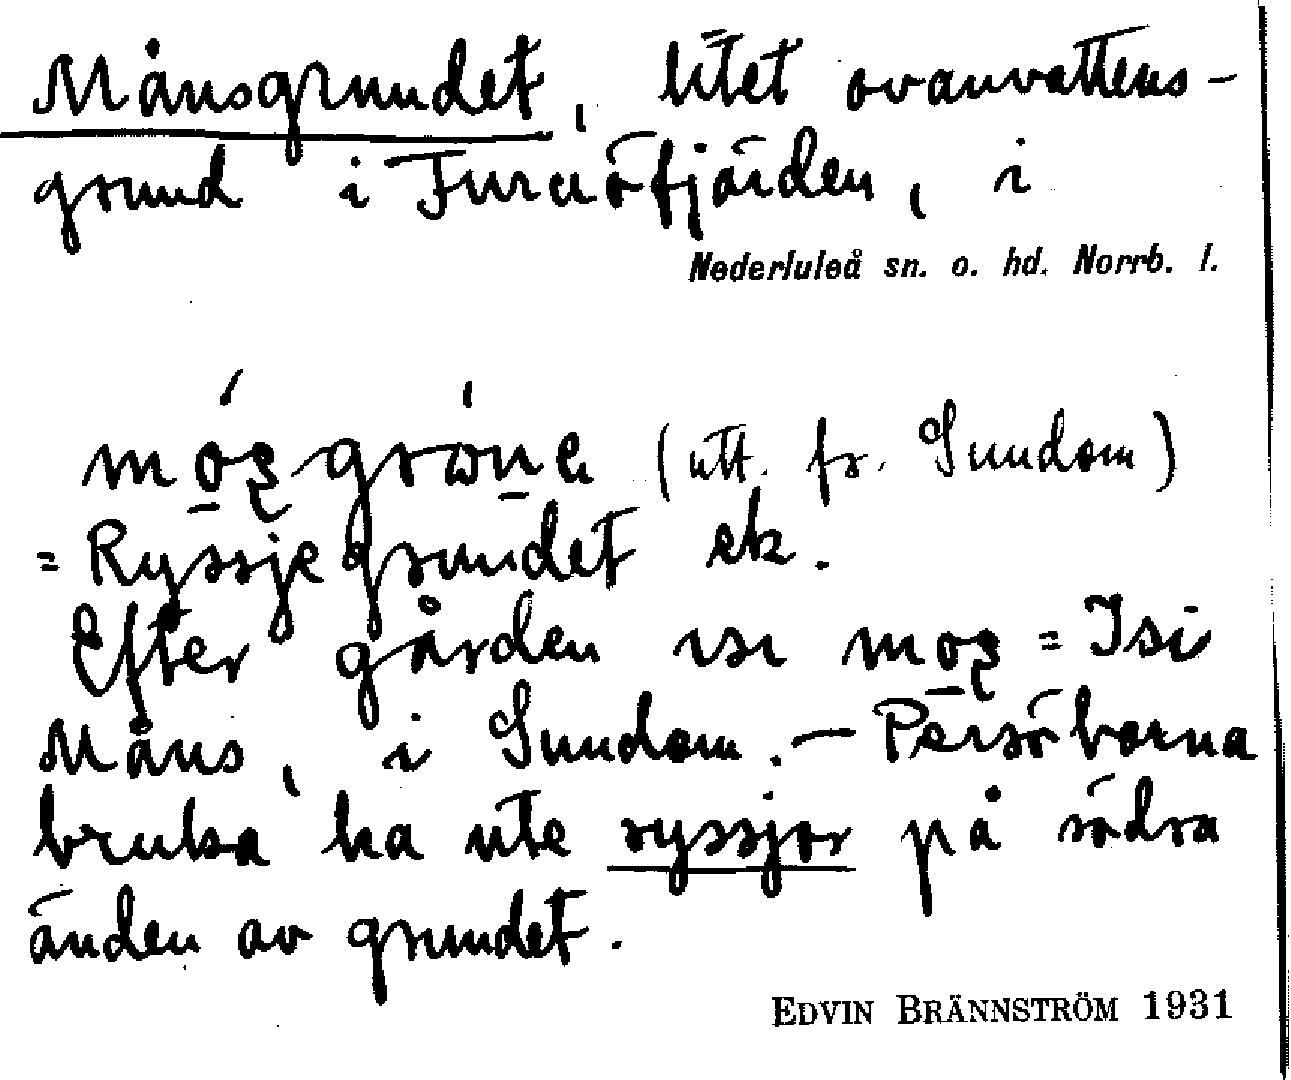 Månsgrundet, litet ovanvattens-
grund i Furuöfjärden, i
Nederluleå sn. o. hd. Norrb. l.
(utt. fr. Sundom)
= Ryssjegrundet ek.
Efter gården = Isi
Måns, i Sundom. — Persöborna
bruka ha ute ryssjor på södra
änden av grundet.
EDVIN BRÄNNSTRÖM 1931